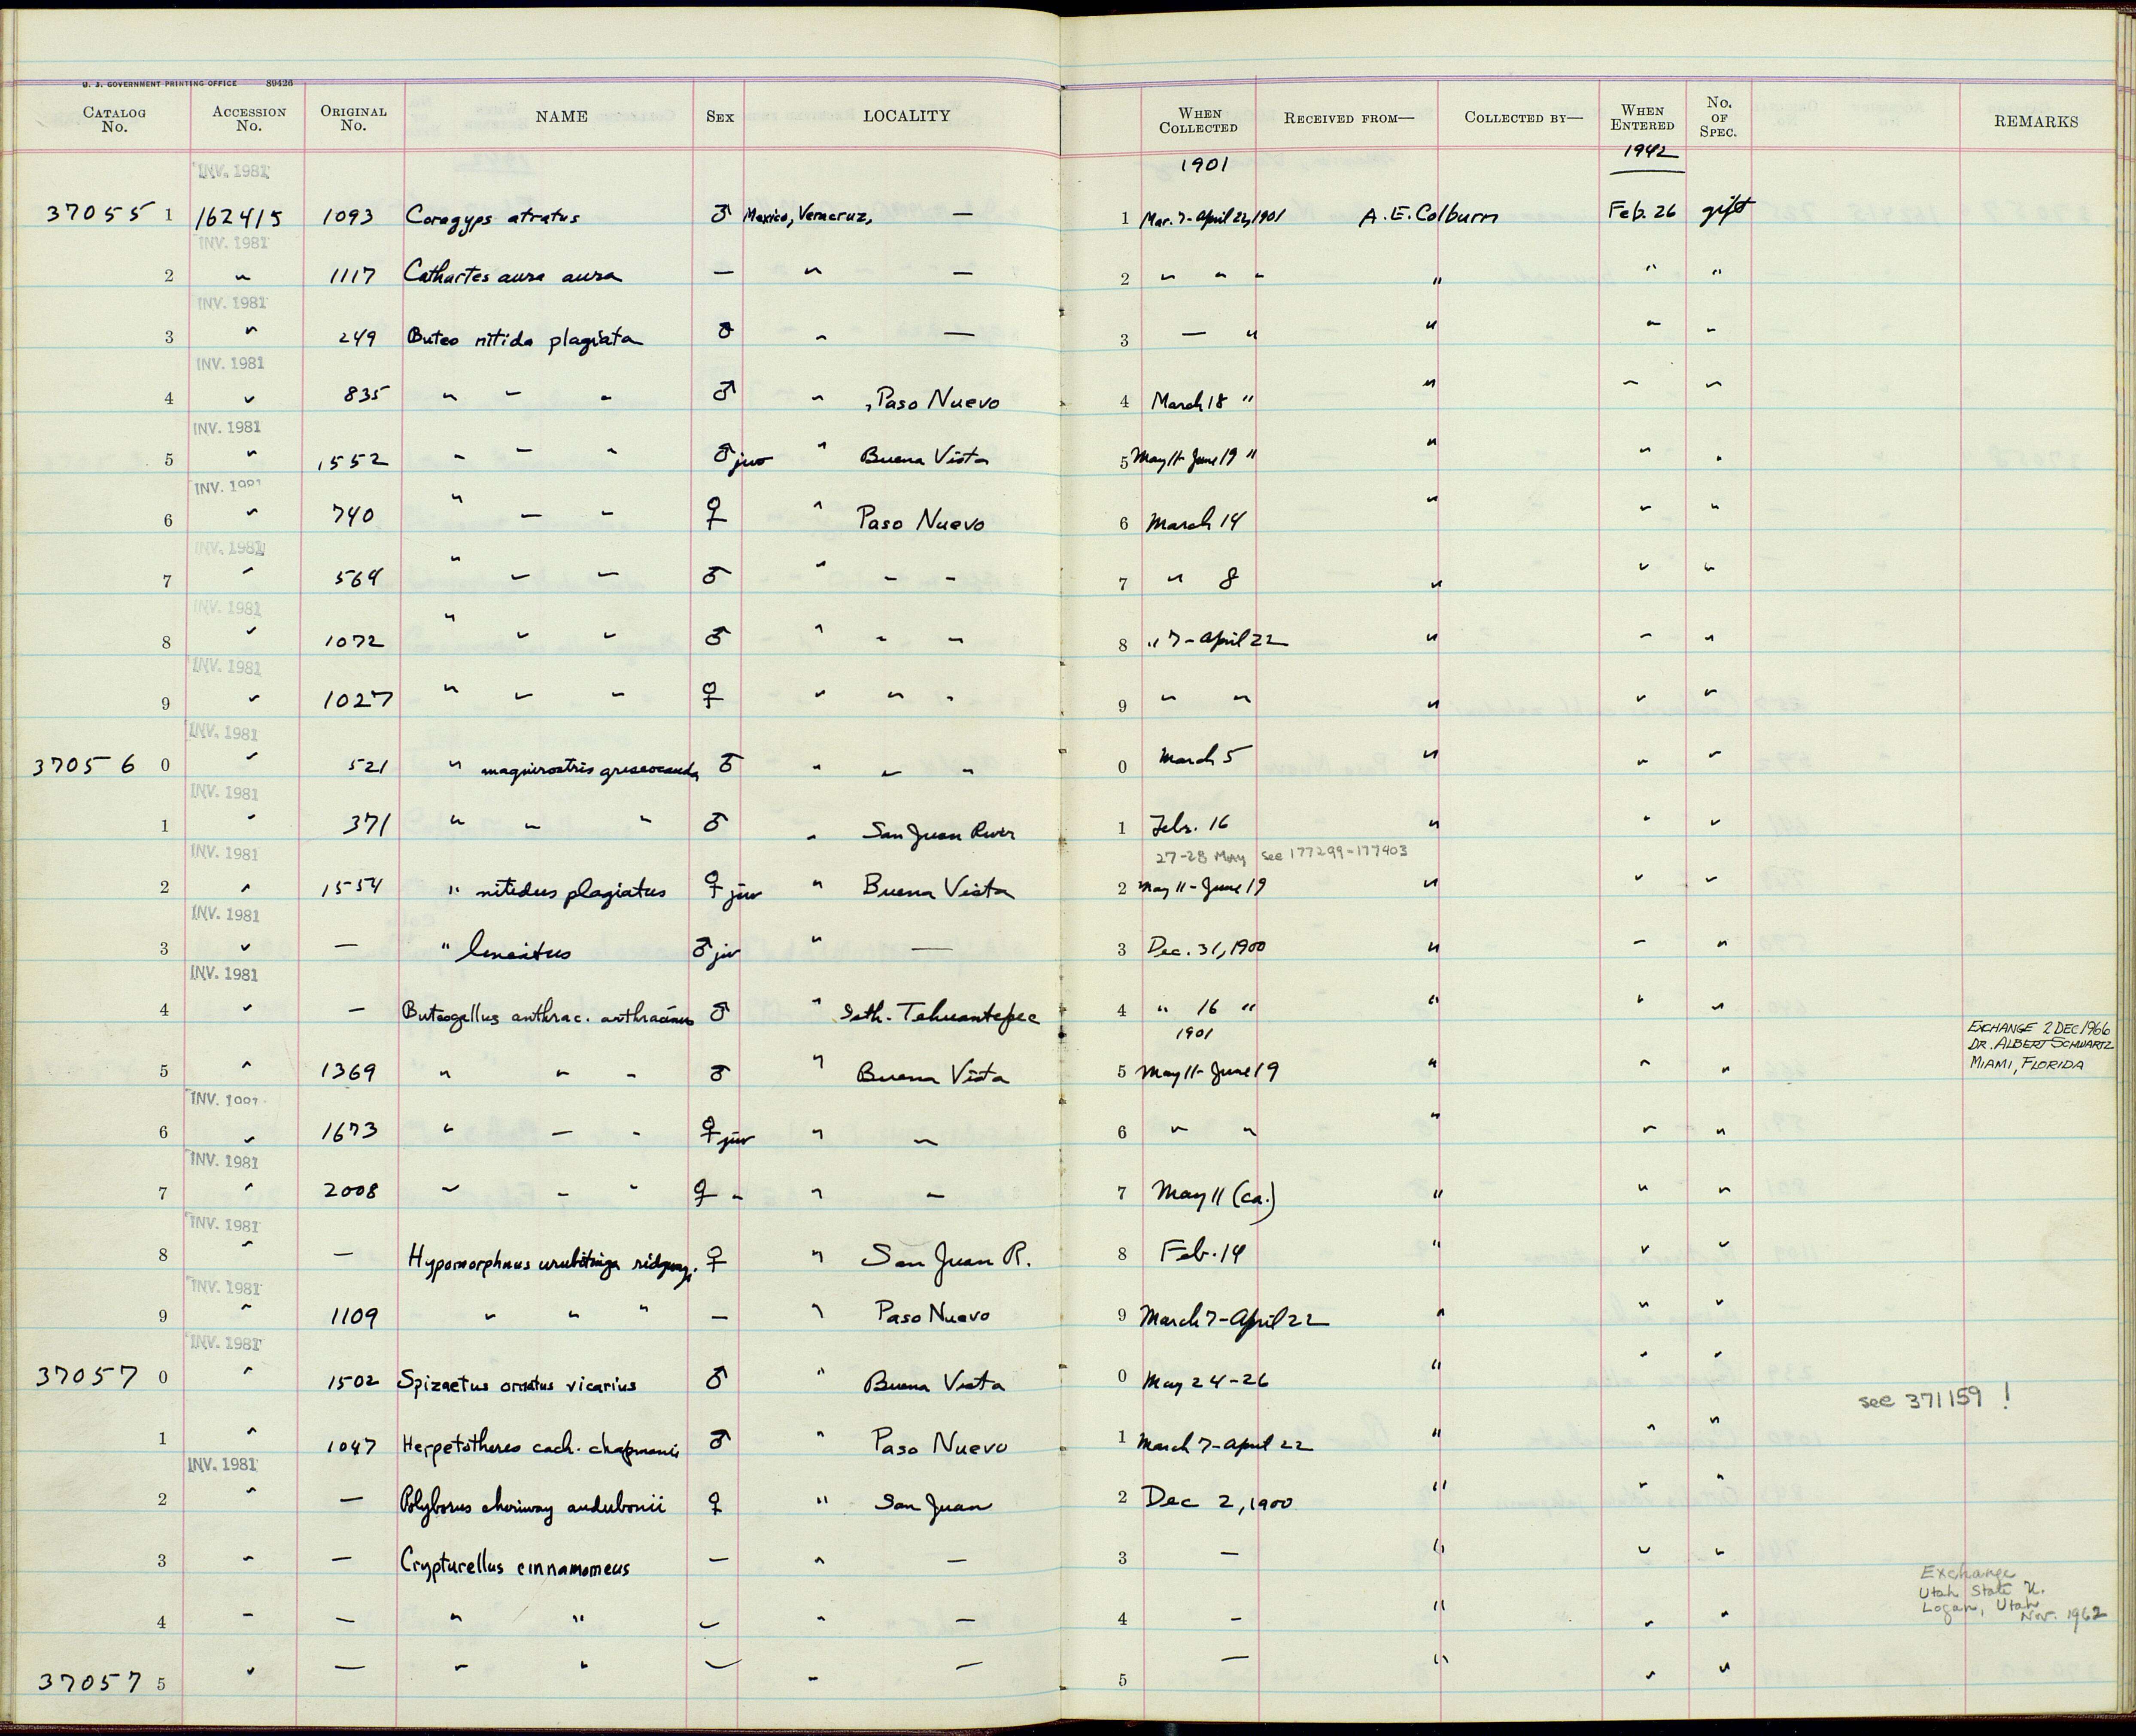 U. S. GOVERNMENT PRINTING OFFICE 89426
CATALOG No. ACCESSION No. ORIGINAL No. NAME SEX LOCALITY WHEN COLLECTED RECEIVED FROM— COLLECTED BY— WHEN ENTERED No. OF SPEC. REMARKS
INV. 1981 1901 1942
37055 1 162415 1093 Coragyps atratus ♂ Mexico, Veracruz, — 1 Mar. 7-April 22, 1901 A. E. Colburn Feb. 26 gift
INV. 1981
2 " 1117 Cathartes aura aura — " — 2 " " " " " "
INV. 1981
3 " 249 Buteo nitida plagiata ♂ " — 3 — " " " "
INV. 1981
4 " 835 " " " ♂ " , Paso Nuevo 4 March 18 " " " "
INV. 1981
5 " 1552 " " " ♂ juv " Buena Vista 5 May 11-June 19 " " " "
INV. 1981
6 " 740 " " " ♀ " Paso Nuevo 6 March 14 " " "
INV. 1981
7 " 564 " " " ♂ " " " 7 " 8 " " "
INV. 1981
8 " 1072 " " " ♂ " " " 8 " 7-April 22 " " "
INV. 1981
9 " 1027 " " " ♀ " " " 9 " " " " "
INV. 1981
37056 0 " 521 " magnirostris griseocauda ♂ " " " 0 March 5 " " "
INV. 1981
1 " 371 " " " ♂ " San Juan River 1 Febr. 16 " " "
INV. 1981 27-28 May see 177299-177403
2 " 1554 " nitidus plagiatus ♀ juv " Buena Vista 2 May 11-June 19 " " "
INV. 1981
3 " — " lineatus ♂ juv " — 3 Dec. 31, 1900 " " "
INV. 1981
4 " — Buteogallus anthrac. anthracinus ♂ " Isth. Tehuantepec 4 " 16 " " " "
1901
EXCHANGE 2 DEC 1966
DR. ALBERT SCHWARTZ
MIAMI, FLORIDA
5 " 1369 " " " ♂ " Buena Vista 5 May 11-June 19 " " "
INV. 1981
6 " 1673 " " " ♀ juv " " 6 " " " " "
INV. 1981
7 " 2008 " " " ♀ " " " 7 May 11 (ca.) " " "
INV. 1981
8 " — Hypomorphnus urubitinga ridgwayi ♀ " San Juan R. 8 Feb. 14 " " "
INV. 1981
9 " 1109 " " " — " Paso Nuevo 9 March 7-April 22 " " "
INV. 1981
37057 0 " 1502 Spizaetus ornatus vicarius ♂ " Buena Vista 0 May 24-26 " " "
see 371159 !
1 " 1047 Herpetotheres cach. chapmani ♂ " Paso Nuevo 1 March 7-April 22 " " "
INV. 1981
2 " — Polyborus cheriway audubonii ♀ " San Juan 2 Dec 2, 1900 " " "
3 " — Crypturellus cinnamomeus — " — 3 — " " "
Exchange
Utah State U.
Logan, Utah
Nov. 1962
4 " — " " " " — 4 — " " "
37057 5 " — " " " " — 5 — " " "